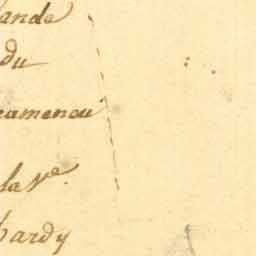 ande
du
eamenou
la Ve.
hardy